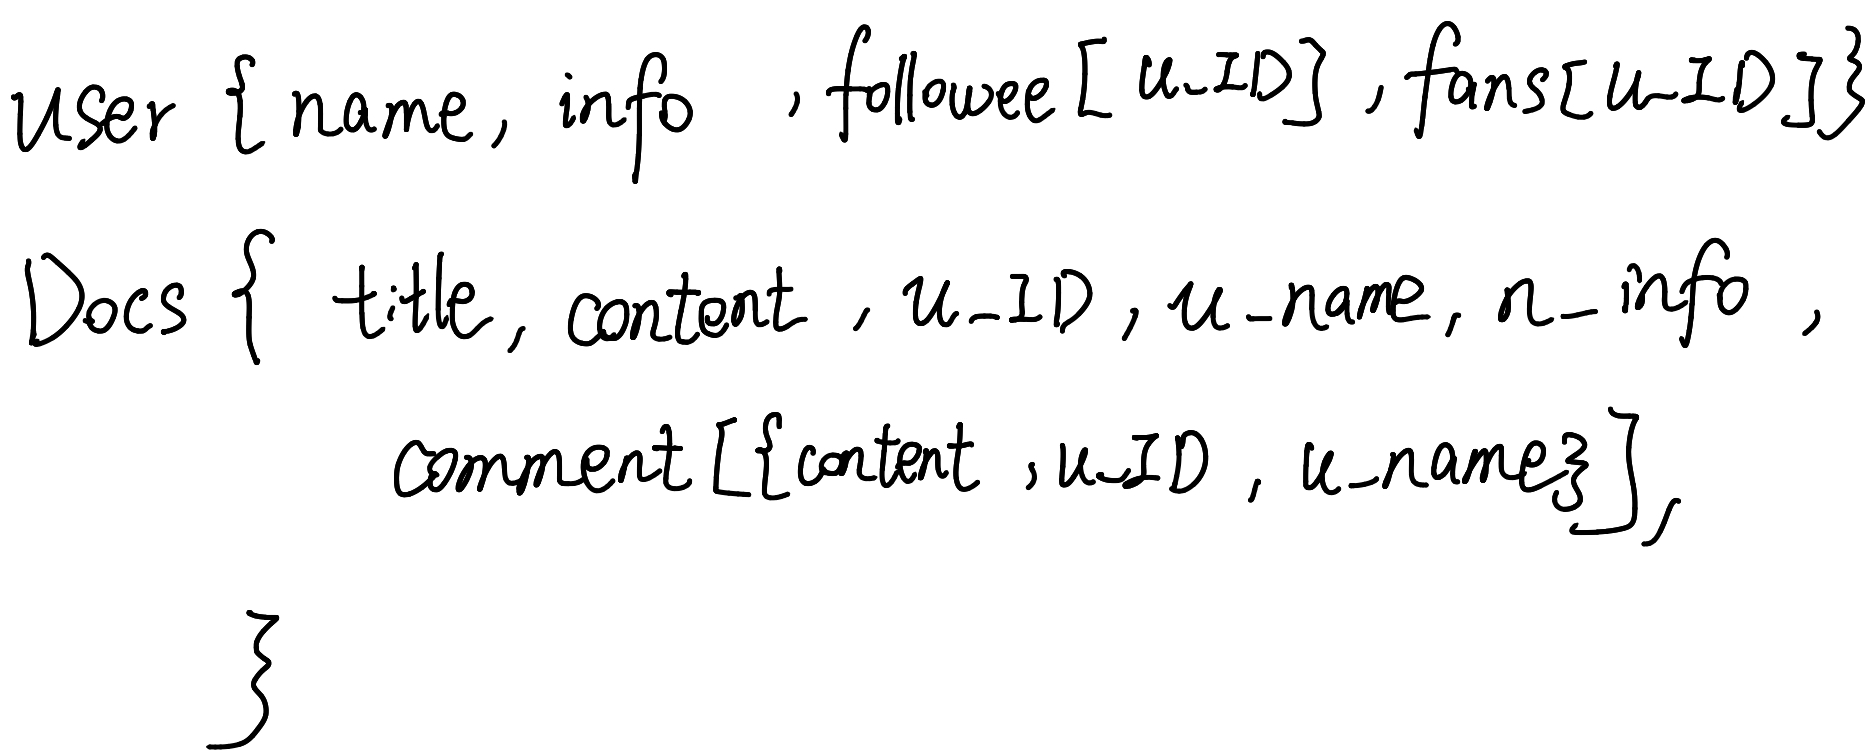 user { name, info , followee [ u_ID ] , fans [ u_ID ] }
Docs { title, content , u_ID , u_name, n_info ,
comment [ { content , u_ID , u_name } ] ,
}